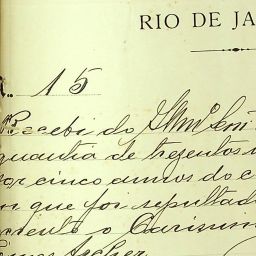 RIO DE JA
N. 15
Recebi do Illmo Snr
quantia de trezentos
por cinco annos do c
em que foi sepultad
ciente o Carissim